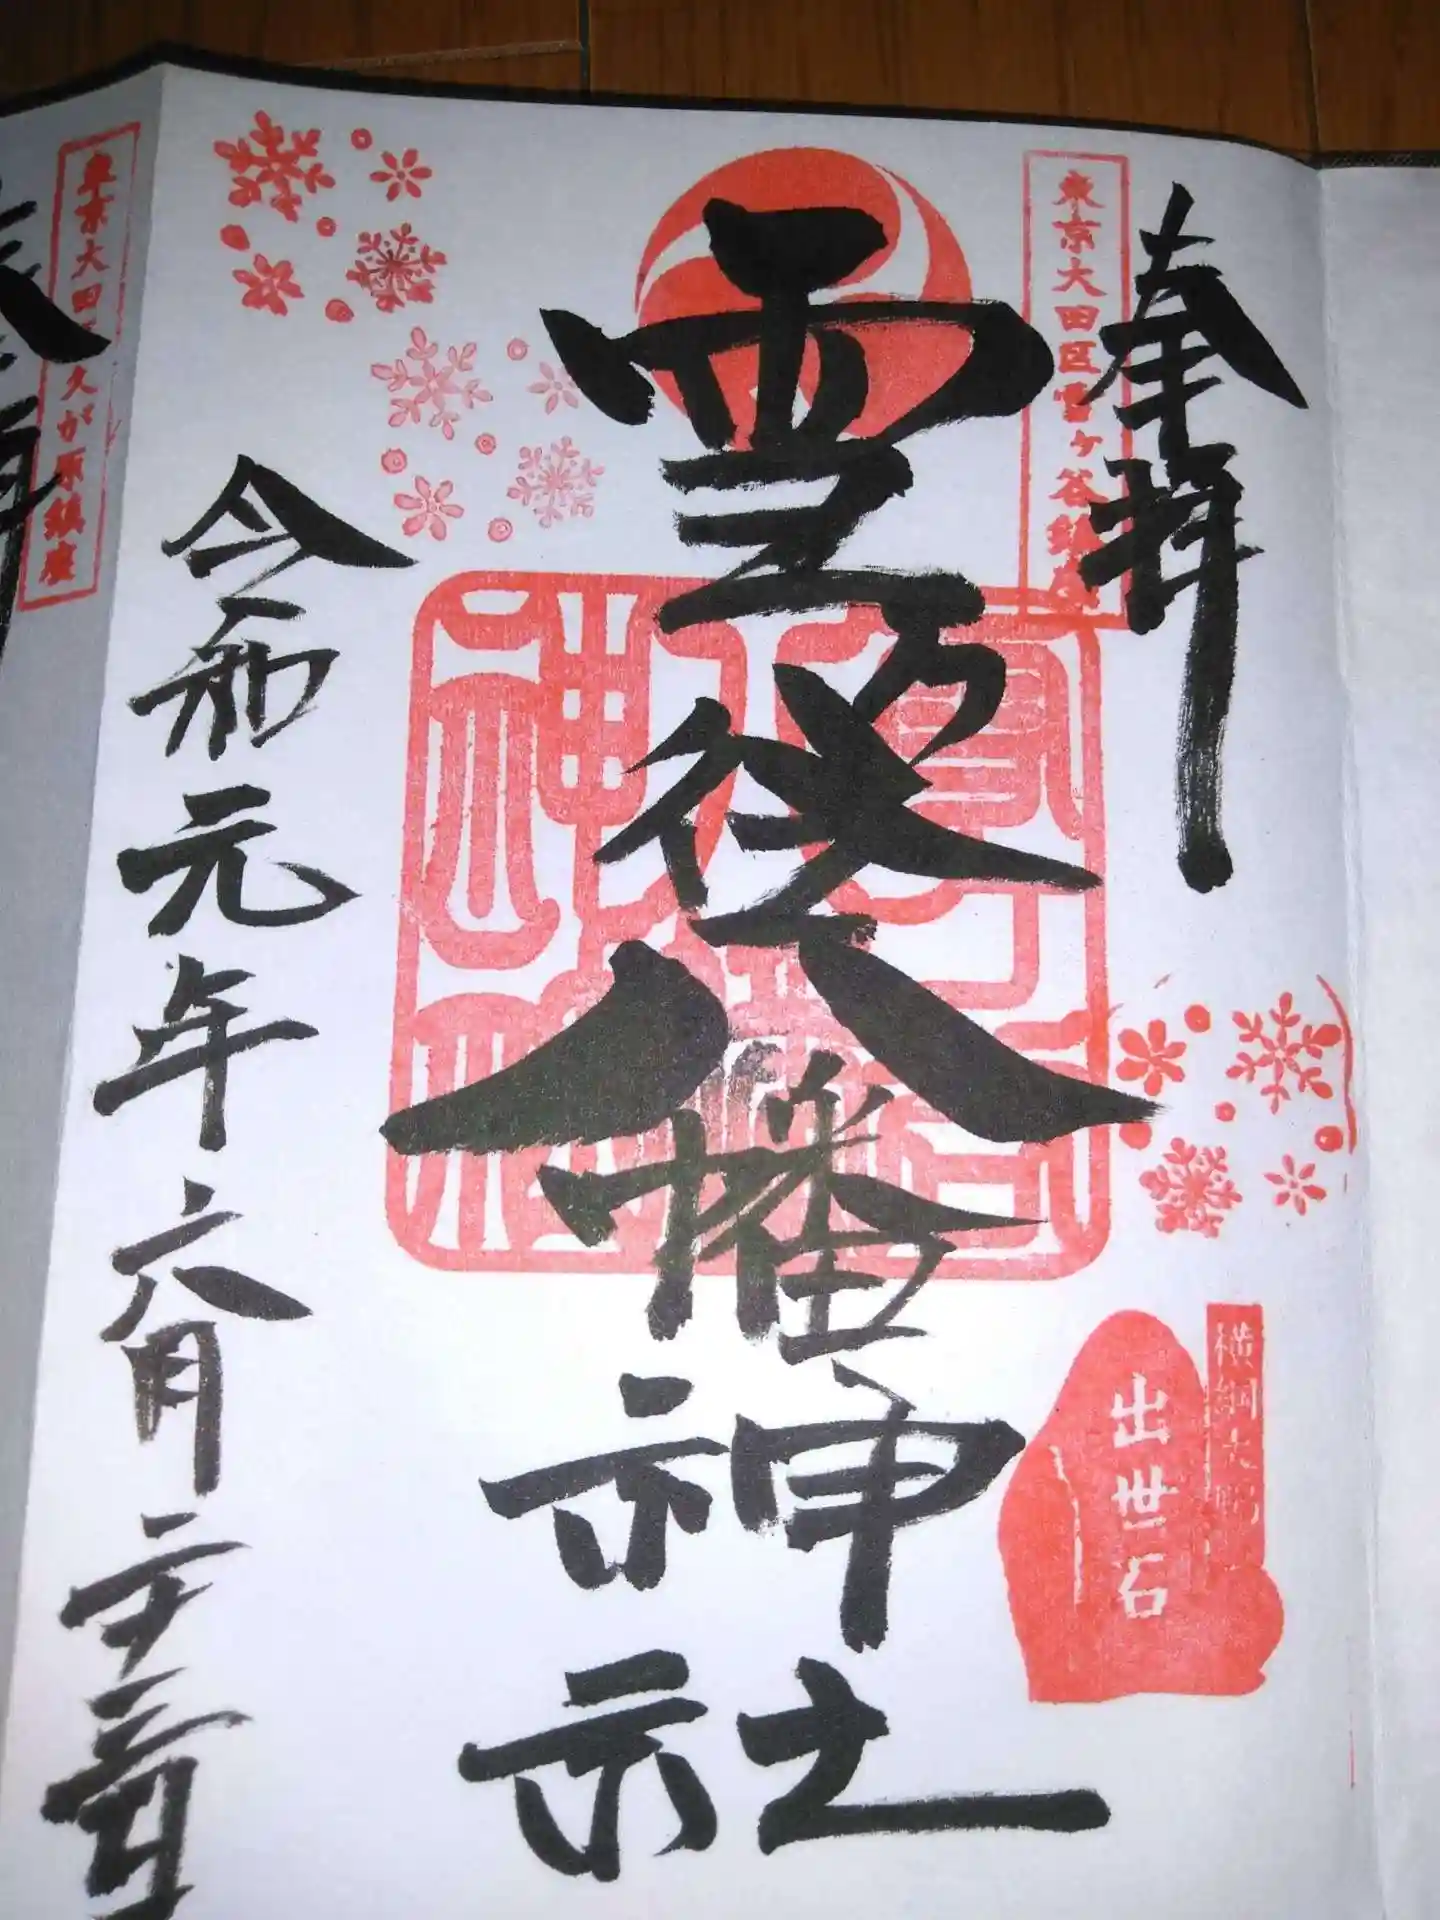 奉拝
東京大田区雪ヶ谷鎮座
雪谷八幡神社
横綱大鵬
出世石
令和元年六月二十三日
東京大田
久が原鎮座